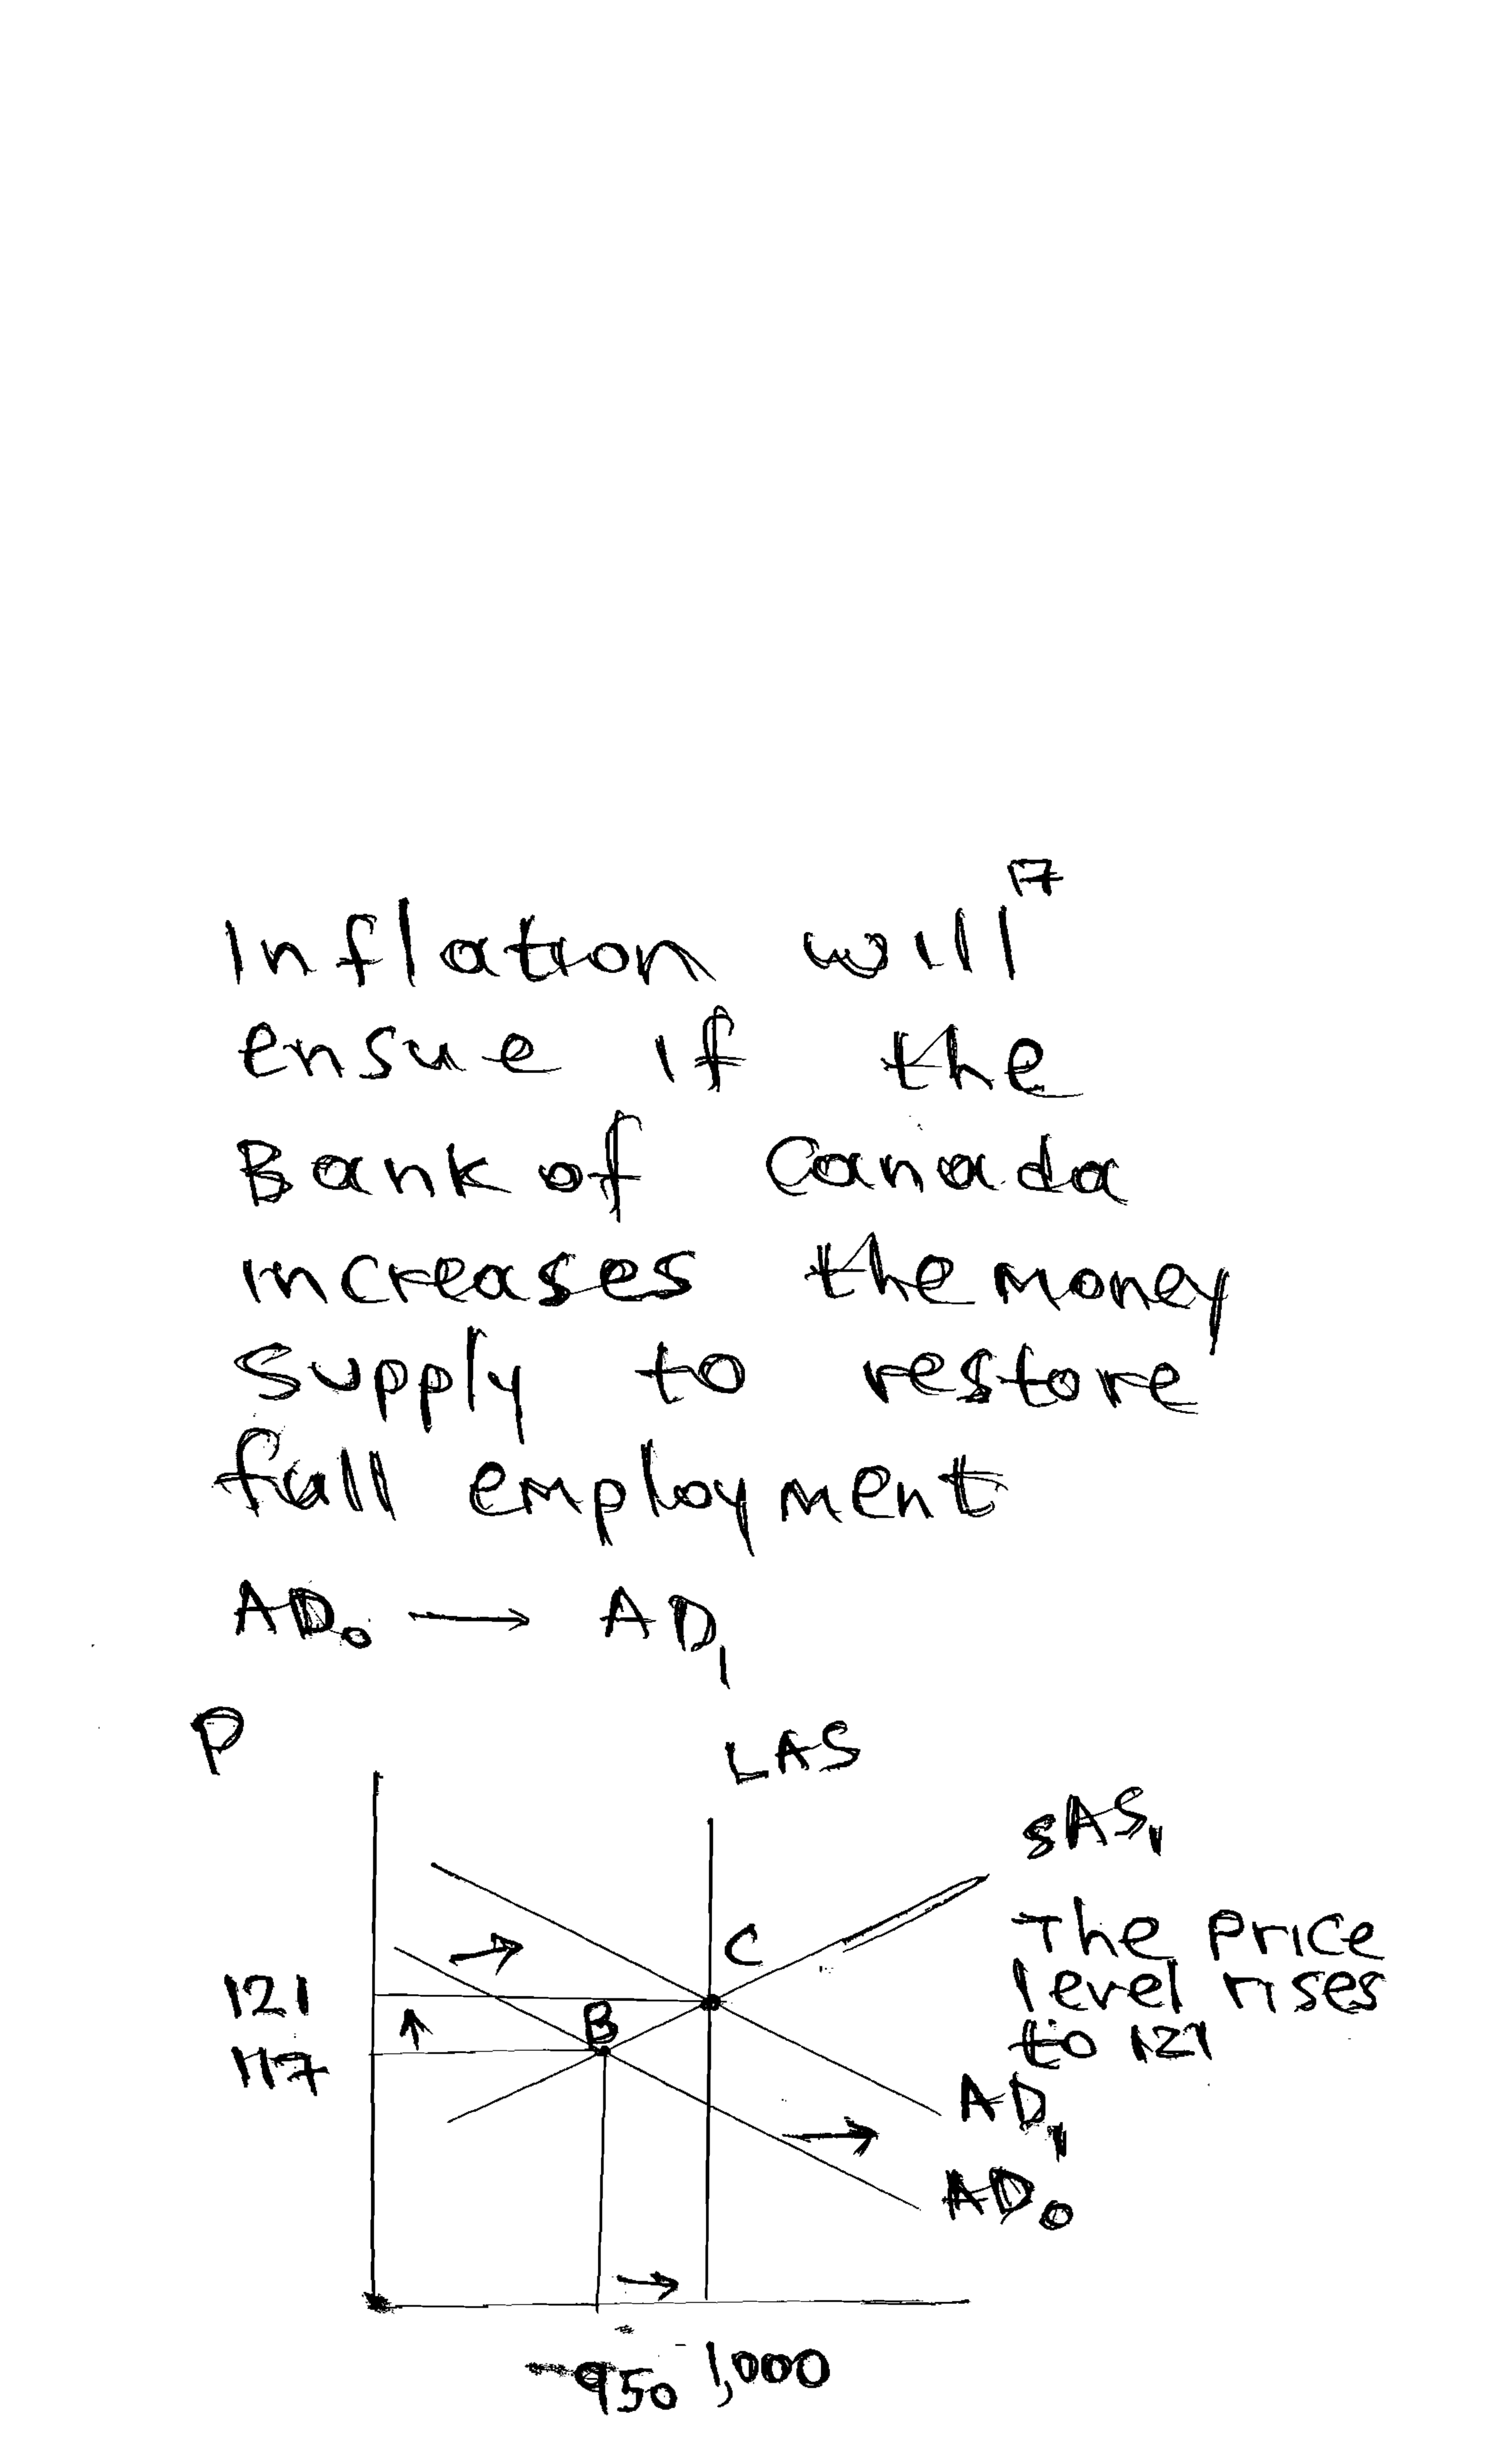 17
Inflation will
ensue if the
Bank of Canada
increases the money
supply to restore
full employment
AD₀ → AD₁
P
LAS
SAS₁
C
The price
level rises
to 121
121
B
117
AD₁
AD₀
950 1,000